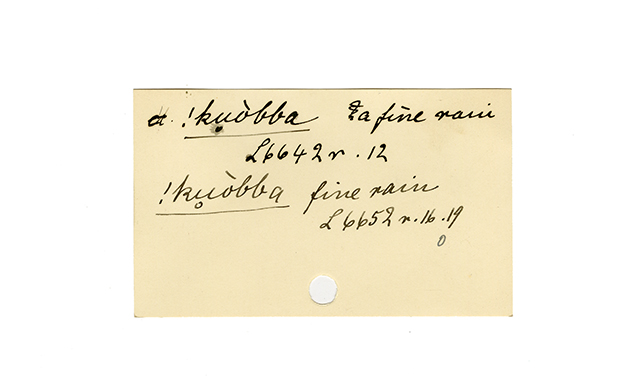 a. !kụòbba ? a fine rain
L6642 r. 12
!kụòbba fine rain
L 6652 r. 16. 19
0